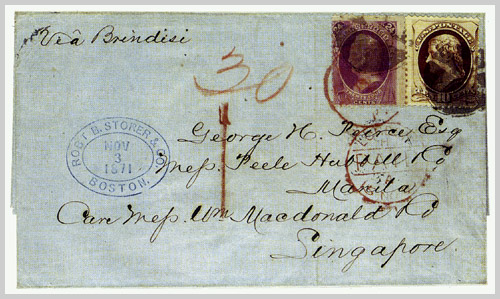 Via Brindisi
30
1
ROBT B. STORER & CO.
NOV
3
1871
BOSTON.
George H. Peirce Esq
Messs. Peele Hubbell & Co
Manila
Care Messs. Wm Macdonald & Co
Singapore.